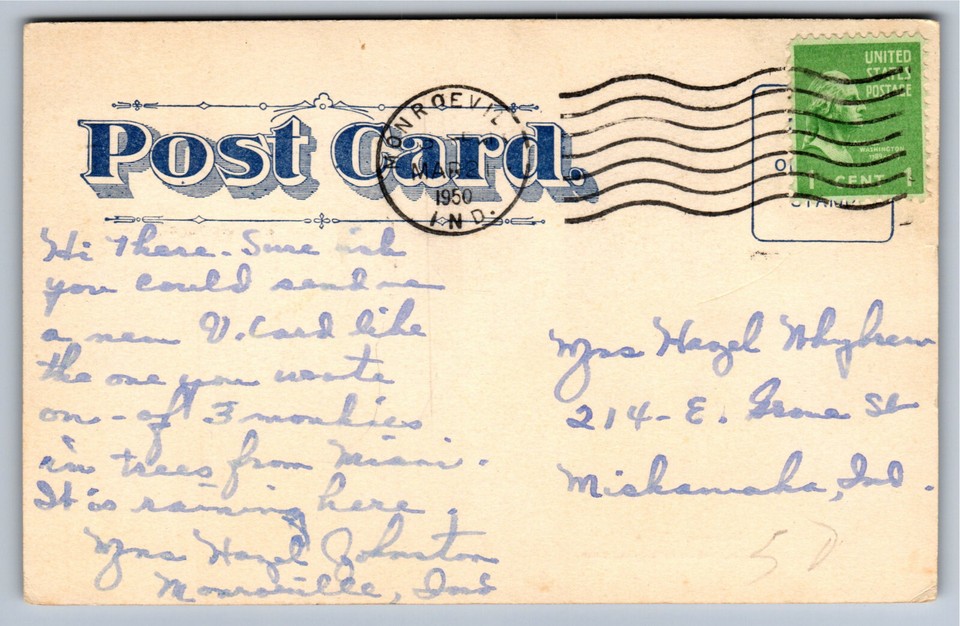 Post Card.
MONROEVIL
MAR
1950
IND.
UNITED
STATES
POSTAGE
WASHINGTON
1 CENT 1
Hi There. Sure
you could send me
a new V. Card like
the one you wrote
on - of 3 monkies
in trees from Miami.
It is raining here.
Mrs Hazel Johnston
Monroeville, Ind
Mrs Hazel Whybrew
214 - E. Grove St
Mishawaka, Ind.
50